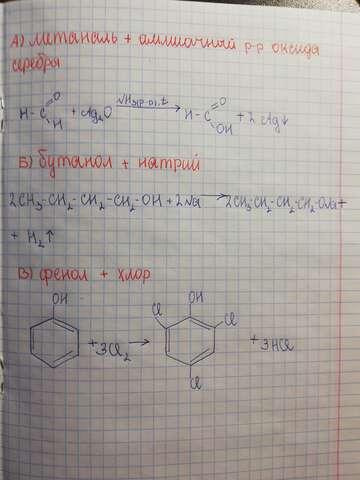 А) метаналь + аммиачный р-р оксида
серебра
H-C=O H + Ag2O NH3(р-р), t → H-C=O OH + 2Ag↓
Б) бутанол + натрий
2CH3-CH2-CH2-CH2-OH + 2Na → 2CH3-CH2-CH2-CH2-ONa +
+ H2↑
В) фенол + хлор
OH OH
Cl Cl
+ 3Cl2 → + 3HCl
Cl